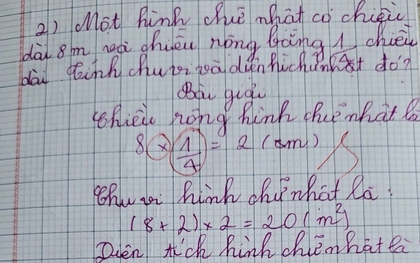 2) Một hình chữ nhật có chiều
dài 8m và chiều rộng bằng 1/4 chiều
dài tính chu vi và diện hìchữnhật đó?
Bài giải
Chiều rộng hình chữ nhật là
8 × 1/4 = 2 (m)
Chu vi hình chữ nhật là:
(8 + 2) × 2 = 20 (m²)
Diện tích hình chữ nhật là